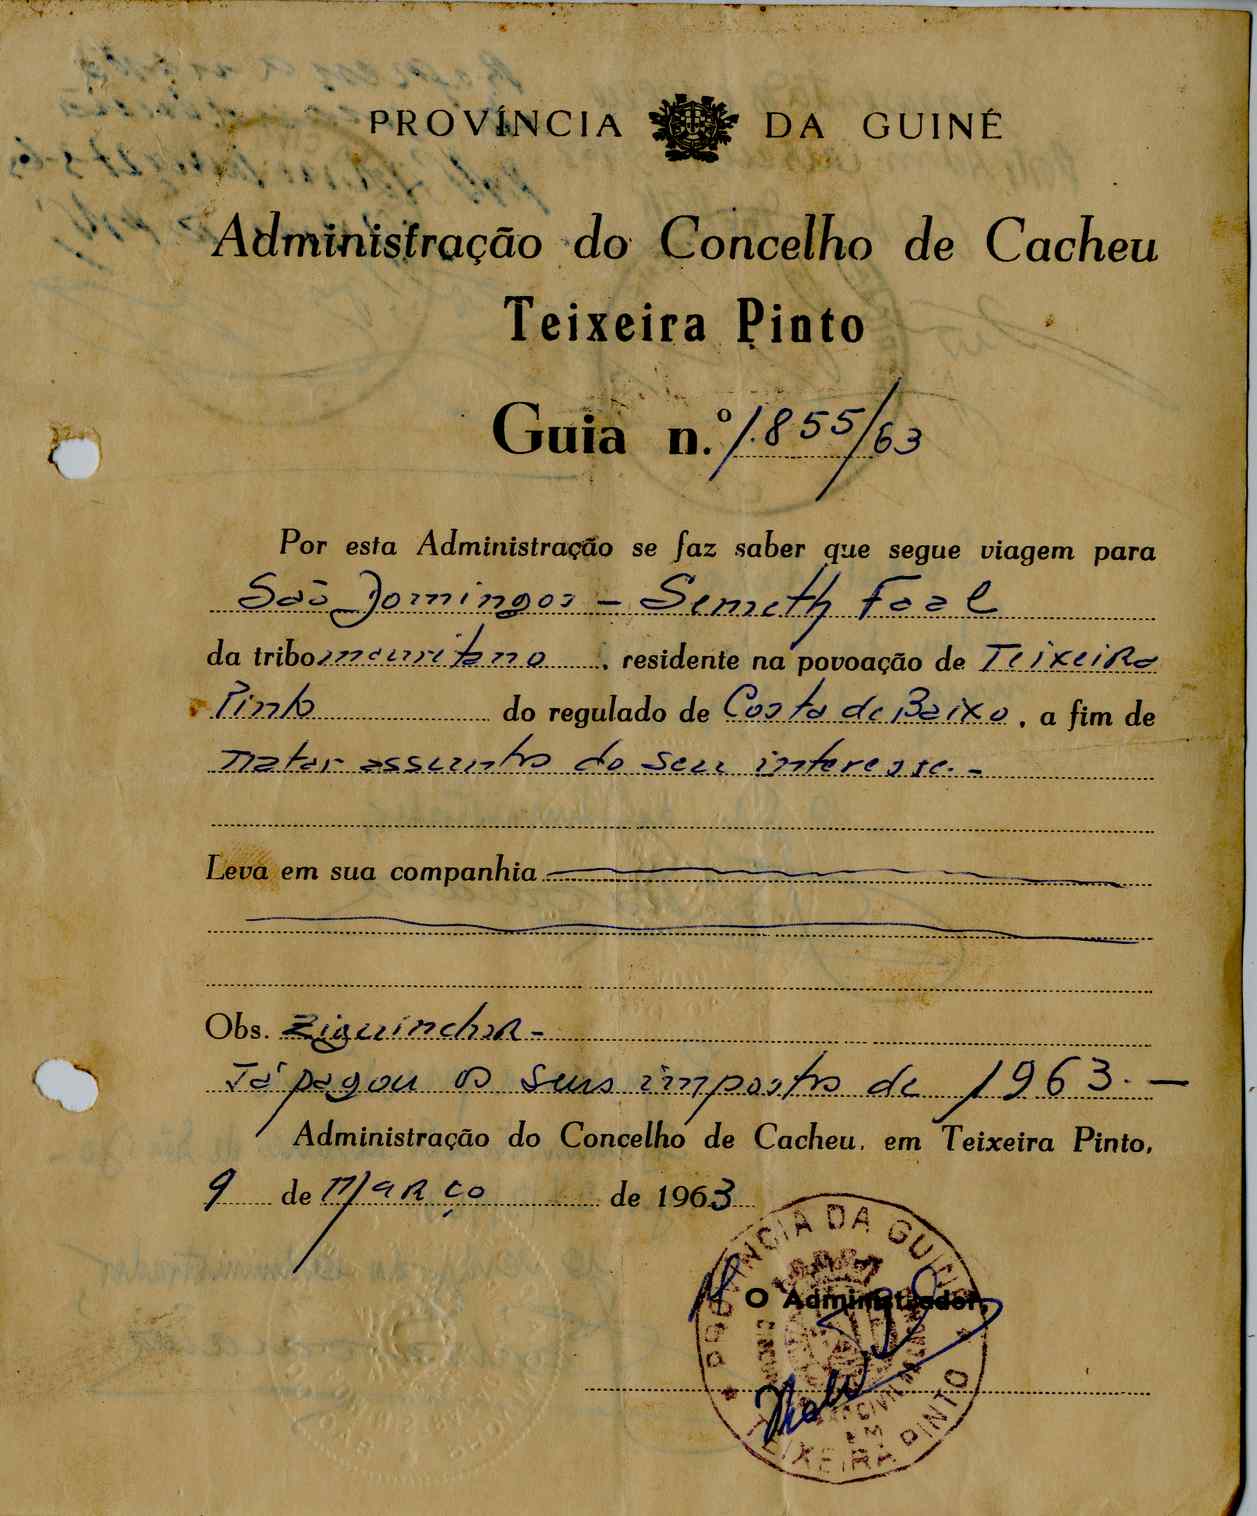 PROVÍNCIA DA GUINÉ
Administração do Concelho de Cacheu
Teixeira Pinto
Guia n.º 1.855/63
Por esta Administração se faz saber que segue viagem para
São Domingos - Semeth Faal
da tribo mauritano, residente na povoação de Teixeira
Pinto do regulado de Costa de Baixo, a fim de
tratar assunto do seu interesse.-
Leva em sua companhia
Obs. Ziguinchor-
Já pagou os seus imposto de 1963.-
Administração do Concelho de Cacheu, em Teixeira Pinto,
9 de Março de 1963
O Administrador,
PROVÍNCIA DA GUINÉ
TEIXEIRA PINTO